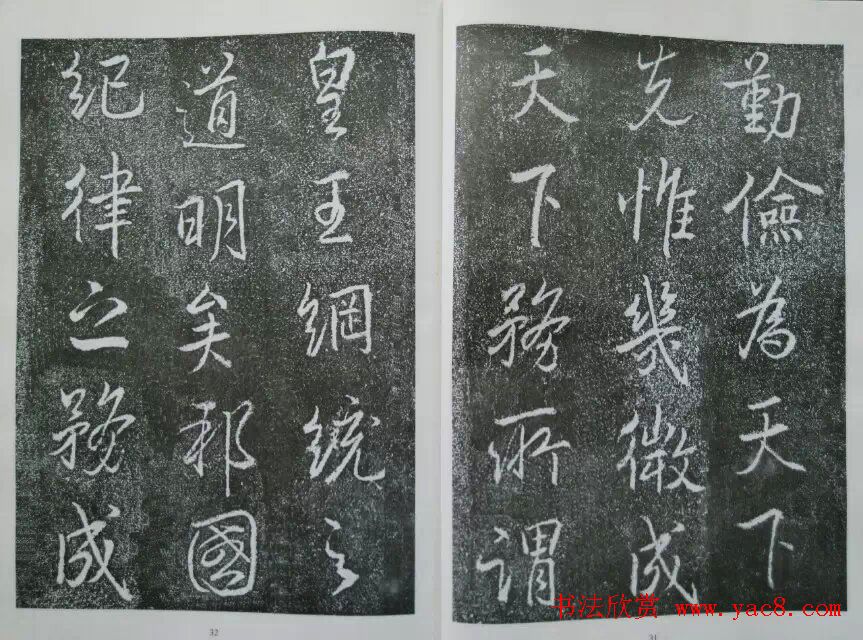 勤儉為天下
先惟幾微成
天下務所謂
31
皇王綱統之
道明矣邦國
紀律之務成
32
书法欣赏 www.yac8.com